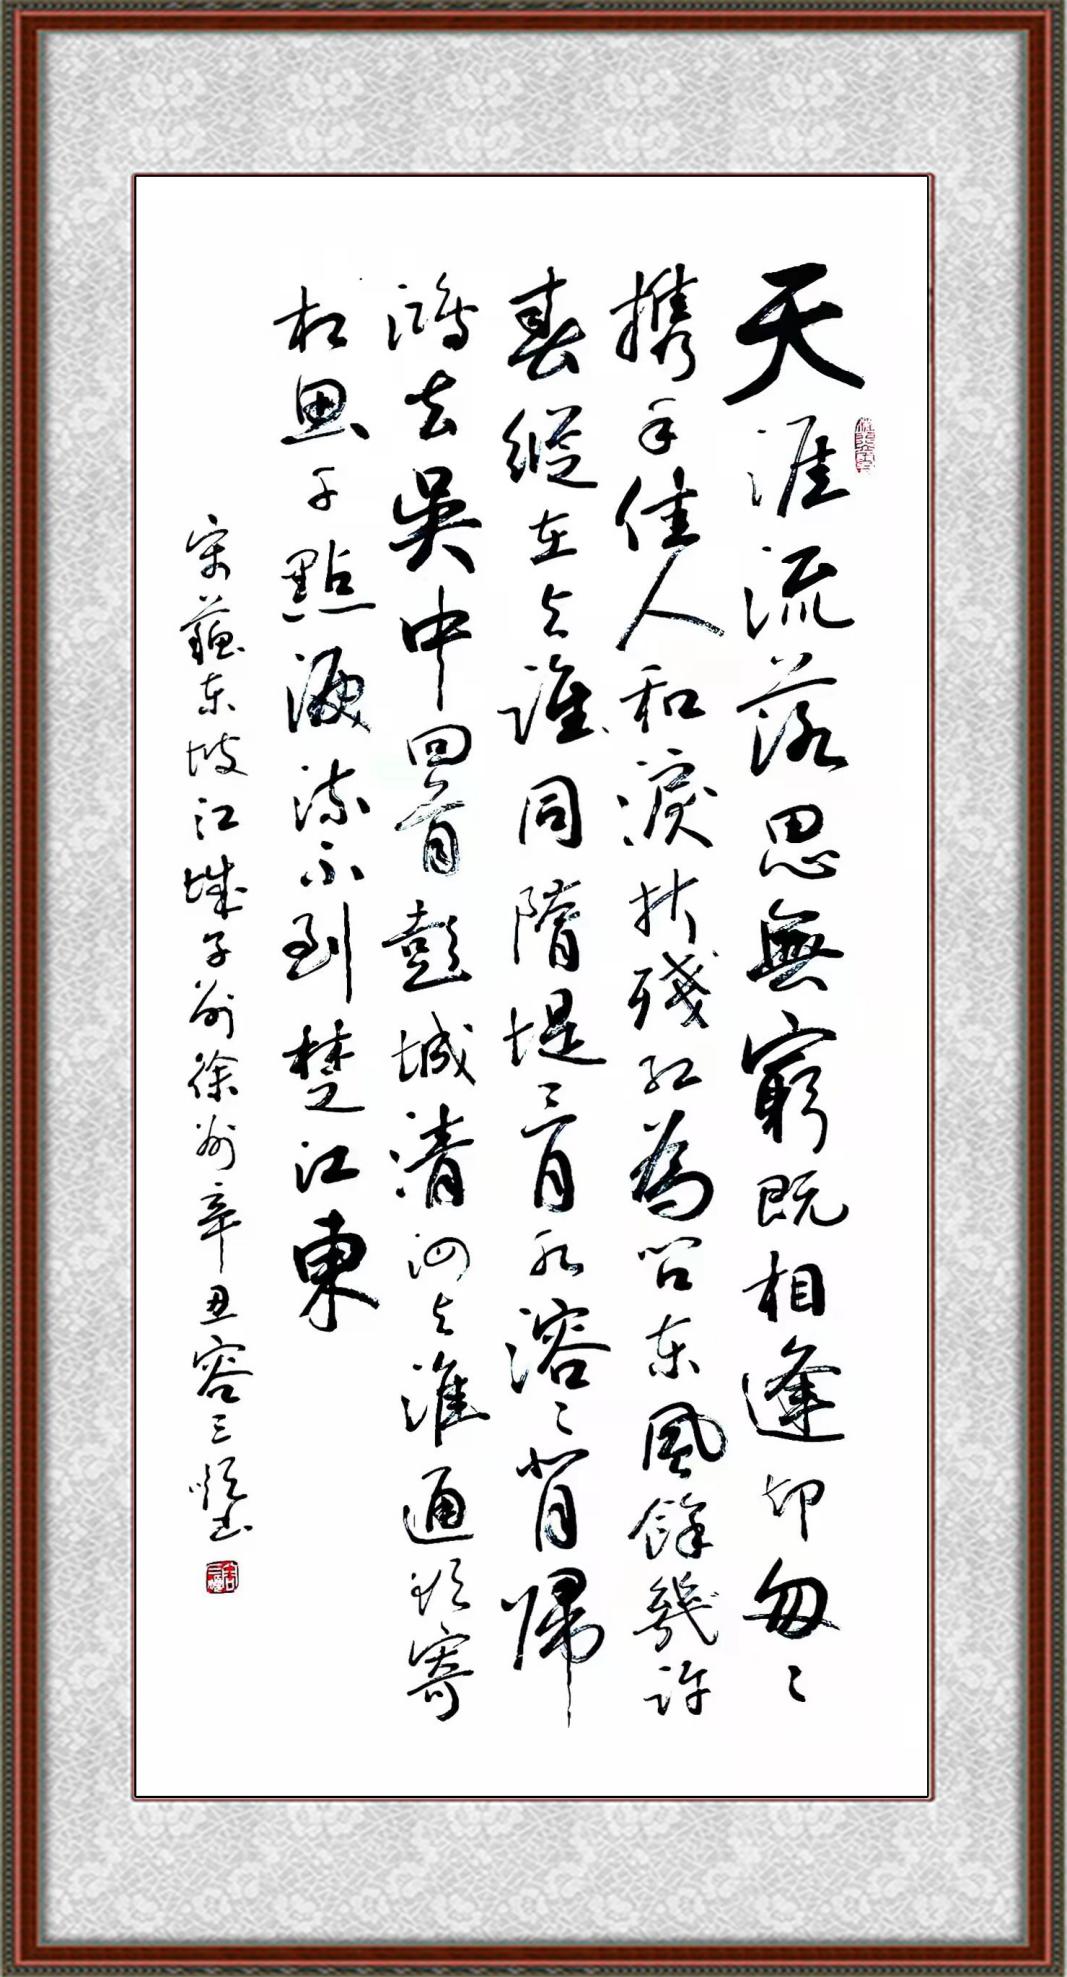 天涯流落思無窮既相逢却匆〻
携手佳人和淚折殘紅為問东風餘幾許
春縱在与誰同隋堤三月水溶〻背歸
鴻去吳中回首彭城清泗与淮通欲寄
相思千點淚流不到楚江東
宋蘇东坡江城子别徐州辛丑容三書